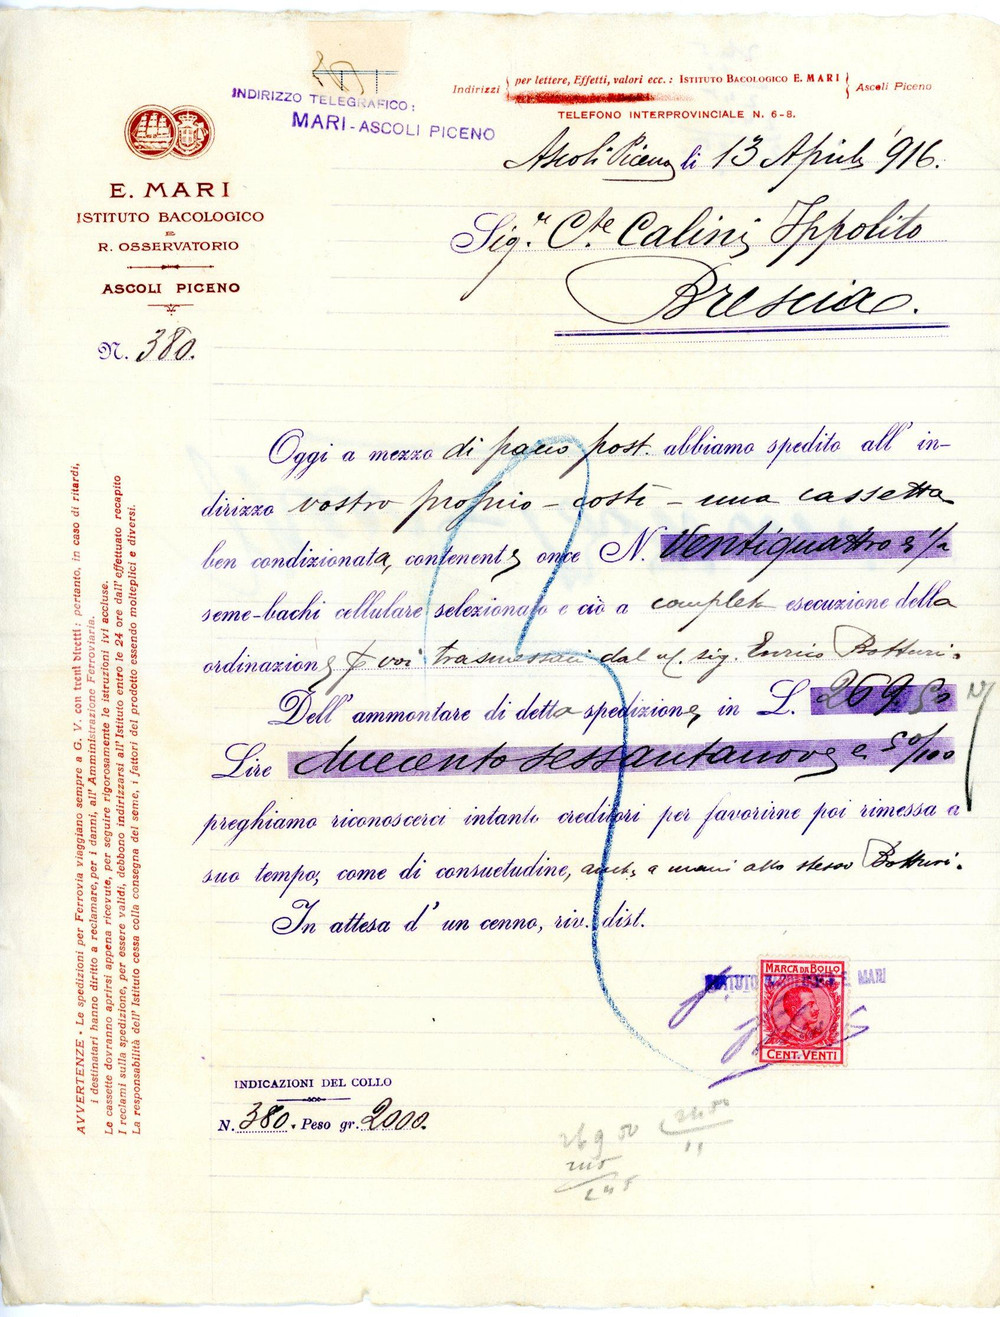 INDIRIZZO TELEGRAFICO:
MARI-ASCOLI PICENO
Indirizzi
per lettere, Effetti, valori ecc.: ISTITUTO BACOLOGICO E. MARI
Ascoli Piceno
TELEFONO INTERPROVINCIALE N. 6-8.
E. MARI
ISTITUTO BACOLOGICO
E
R. OSSERVATORIO
ASCOLI PICENO
N. 380.
Ascoli Piceno li 13 Aprile 916.
Sigr. Cte Calini Ippolito
Brescia.
Oggi a mezzo di pacco post. abbiamo spedito all' in-
dirizzo vostro proprio - costì - una cassetta
ben condizionata, contenente once N. Ventiquattro e 1/2
seme-bachi cellulare selezionato e ciò a completa esecuzione della
ordinazione voi trasmessaci dal sig. Enrico Botturi.
Dell' ammontare di detta spedizione, in L. 269.50
Lire duecentosessantanove e 50/100
preghiamo riconoscerci intanto creditori per favorirne poi rimessa a
suo tempo, come di consuetudine, anche a mani allo stesso Botturi.
In attesa d' un cenno, riv. dist.
MARCA DA BOLLO
CENT. VENTI
ISTITUTO BACOLOGICO E. MARI
INDICAZIONI DEL COLLO
N. 380. Peso gr. 2000.
269 50
245
245
2450
11
AVVERTENZE - Le spedizioni per Ferrovia viaggiano sempre a G. V. con treni diretti: pertanto, in caso di ritardi,
i destinatari hanno diritto a reclamare, per i danni, all' Amministrazione Ferroviaria.
Le cassette dovranno aprirsi appena ricevute, per seguire rigorosamente le istruzioni ivi accluse.
I reclami sulla spedizione, per essere validi, debbono indirizzarsi all' Istituto entro le 24 ore dall' effettuato recapito
La responsabilità dell' Istituto cessa colla consegna del seme, i fattori del prodotto essendo molteplici e diversi.